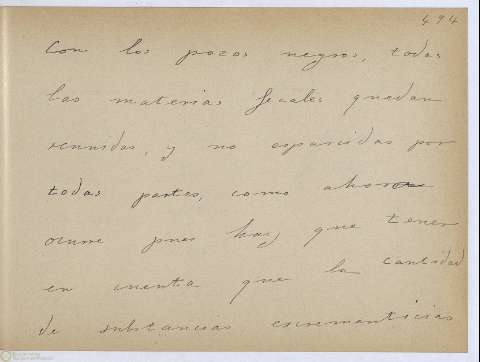 494
Con los pozos negros, todas
las materias fecales quedan
reunidas, y no esparcidas por
todas partes, como ahora
ocurre pues hay que tener
en cuenta que la cantidad
de substancias escrementicias